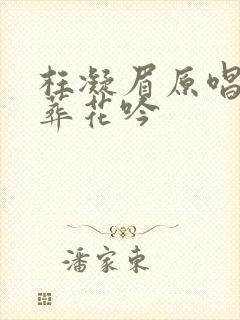 枉凝眉原唱
葬花吟
潘家东